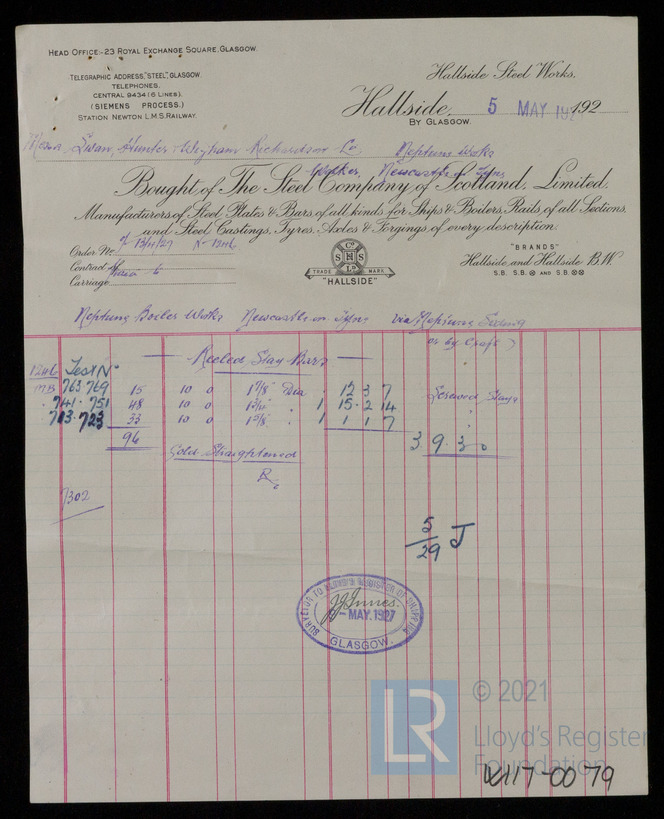 HEAD OFFICE:- 23 ROYAL EXCHANGE SQUARE, GLASGOW.
TELEGRAPHIC ADDRESS, "STEEL", GLASGOW.
TELEPHONES.
CENTRAL 9434 (6 LINES).
(SIEMENS PROCESS.)
STATION NEWTON L.M.S. RAILWAY.
Hallside Steel Works,
Hallside, 5 MAY 192 192
BY GLASGOW.
Messrs. Swan, Hunter & Wigham Richardson Ld. Neptune Works
Walker, Newcastle on Tyne
Bought of The Steel Company of Scotland, Limited.
Manufacturers of Steel Plates & Bars, of all kinds for Ships & Boilers, Rails, of all Sections,
and Steel Castings, Tyres, Axles & Forgings of every description.
Order No.
Contract
Carriage
Co
S H S
Ld
TRADE MARK
"HALLSIDE"
"BRANDS"
Hallside and Hallside B.W.
S.B. S.B. AND S.B.
Neptune Boiler Works Newcastle on Tyne via Neptune Siding
or by Craft
Reeled Stay Bars
1246 Test No
MB 763 769 15 10 0 1 7/8 Dia 12 3 7 Screwed Stays
741 . 751 48 10 0 1 15 . 2 14
713 . 723 33 10 0 1 5/8 1 1 1 7
96 3 9 . 3 0
Cold Straightened
7302
5/29 J
SURVEYOR TO LLOYD'S REGISTER OF SHIPPING
J J Innes.
- MAY. 1927
GLASGOW.
LR
© 2021
Lloyd's Register
Foundation
W117-0079